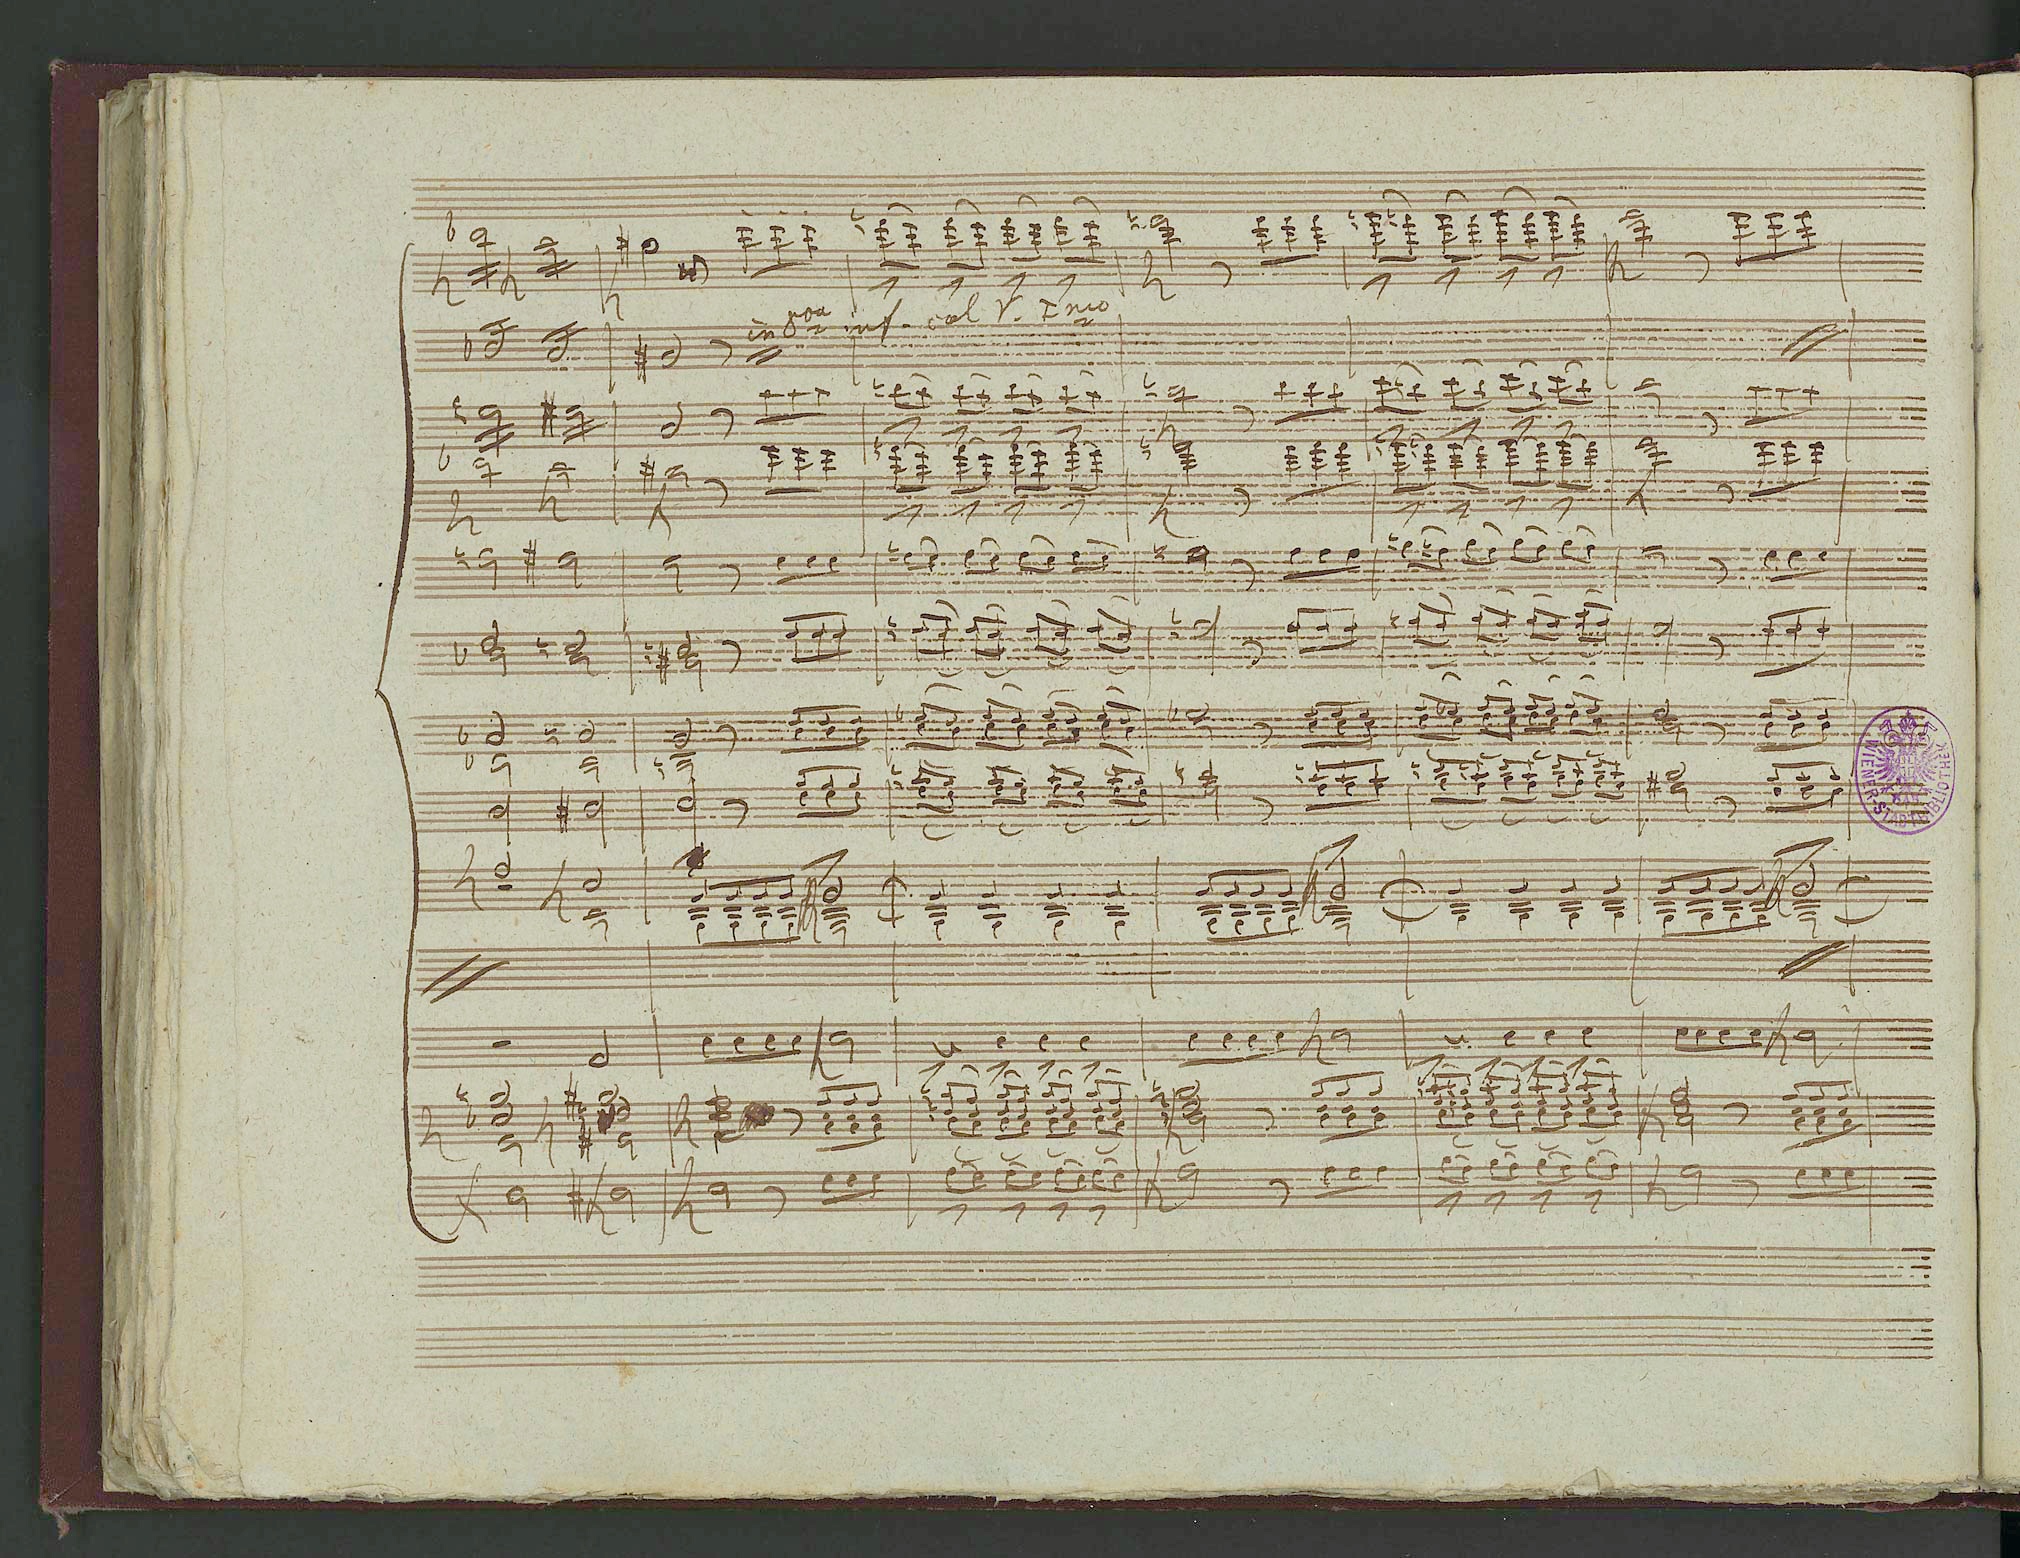 in 8va inf. col V. Imo
WIENER-STADTBIBLIOTHEK